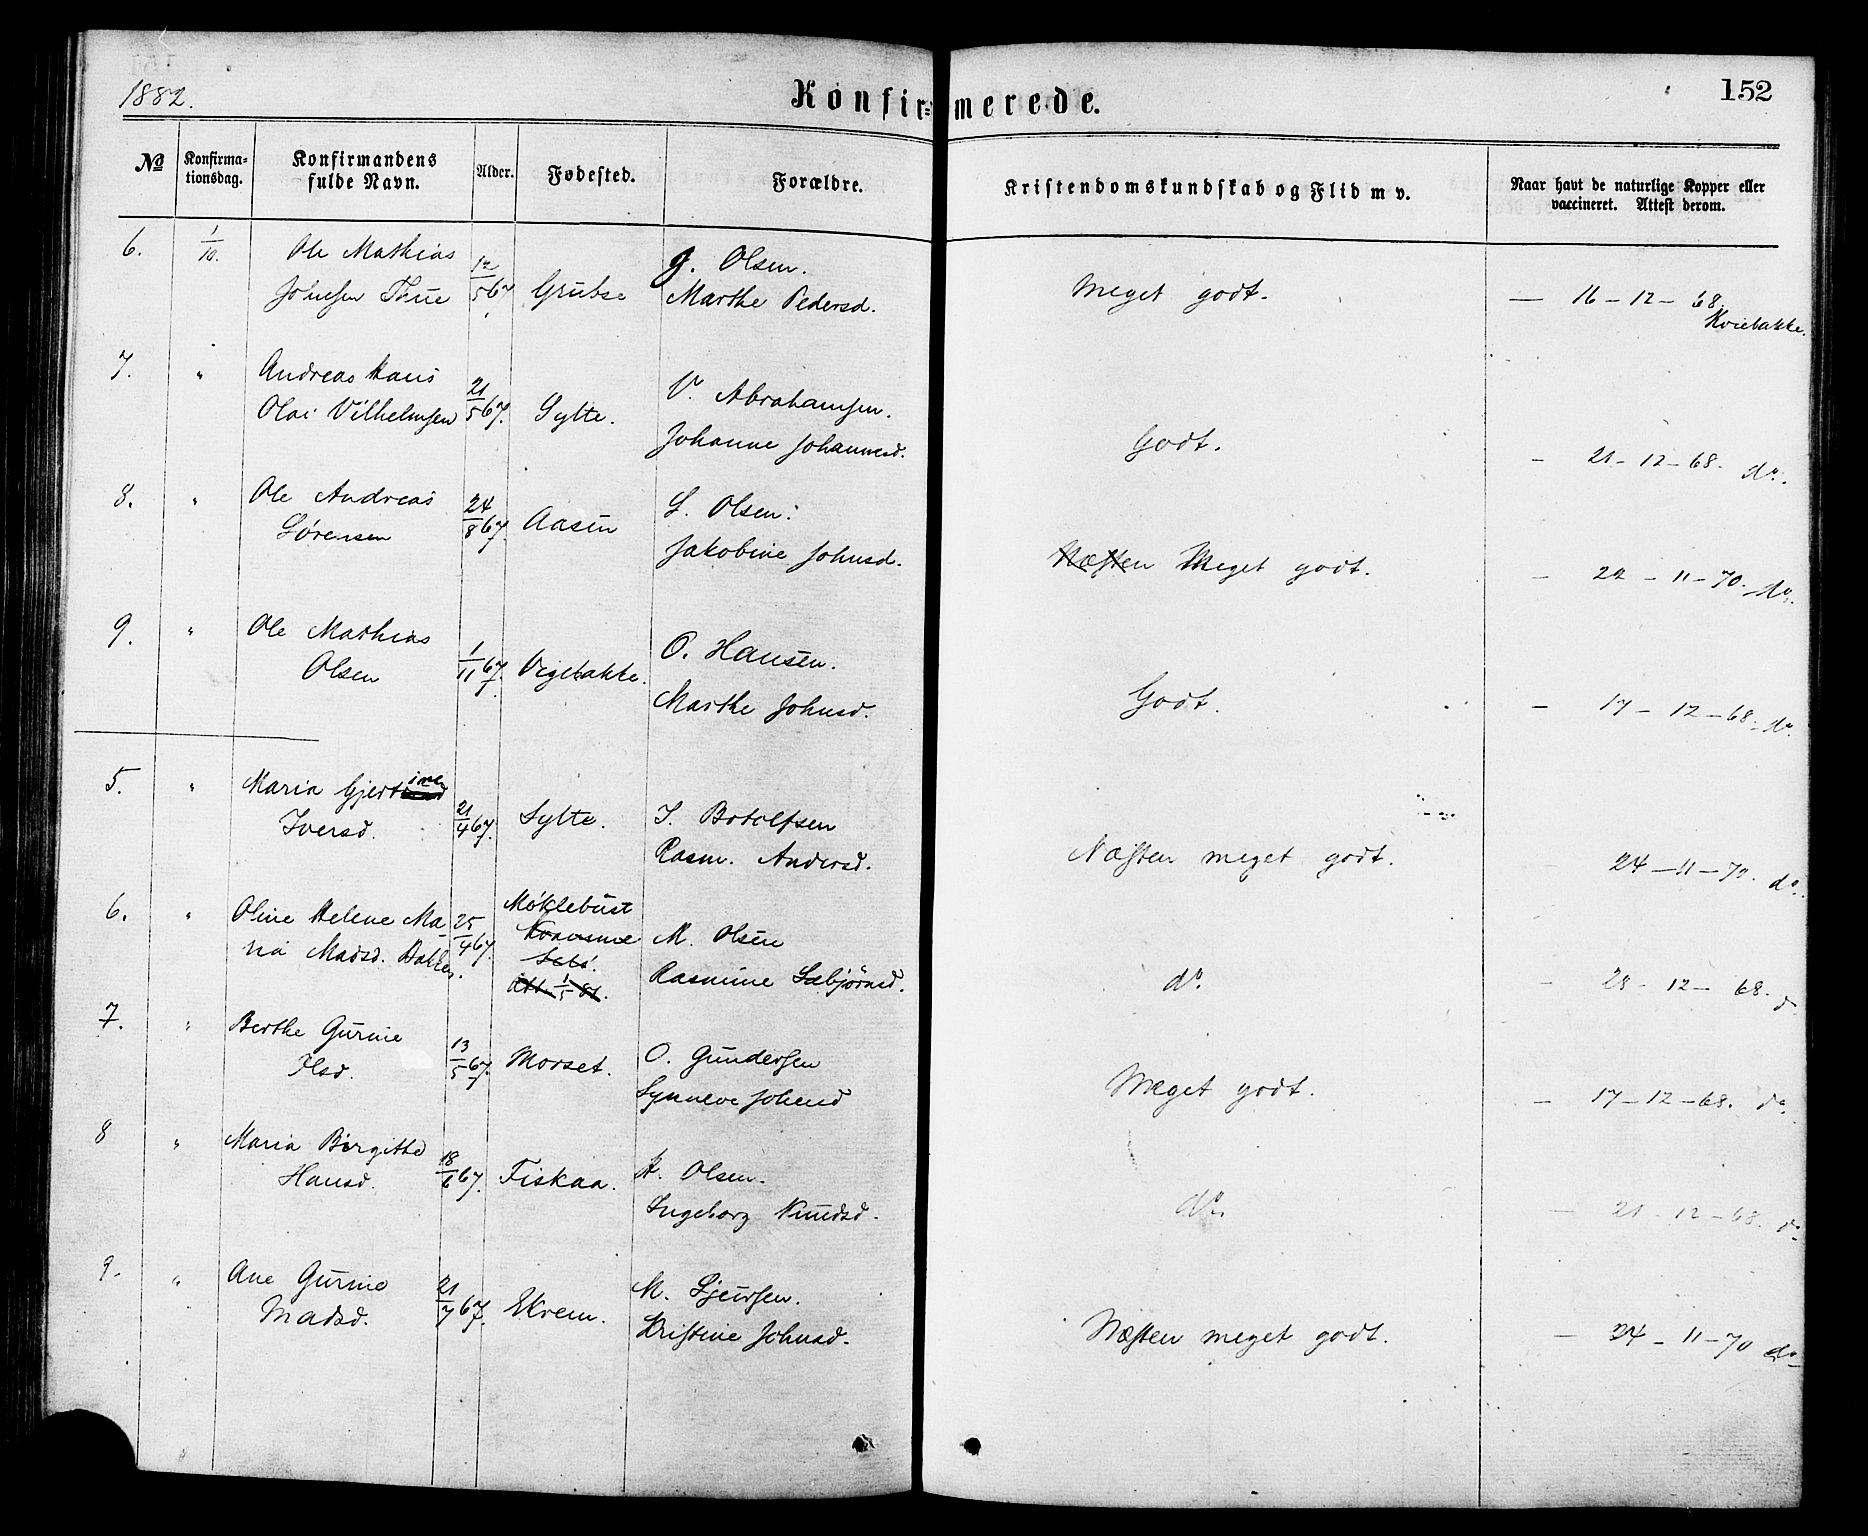 1882.
Konfirmerede.
152
No
Konfirma-
tionsdag.
Konfirmandens
fulde Navn.
Alder.
Fødested.
Forældre.
Kristendomskundskab og Flid m v.
Naar havt de naturlige Kopper eller
vaccineret. Attest derom.
6. 1/10. Ole Mathias 12/5 67 J. Olsen.
Johnsen Thue Grubse Marthe Pedersd. Meget godt. — 16-12-68. Kviebakke.
7. " Andreas Hans 21/5 67. V. Abrahamsen.
Olai Vilhelmsen Sylte. Johanne Johannesd. Godt. — 21-12-68. do.
8. " Ole Andreas 24/8 67. S. Olsen.
Sørensen Aasen Jakobine Johnsd. Næsten Meget godt. — 22-11-70. do.
9. " Ole Mathias 1/11 67. O. Hansen.
Olsen Vegebakke. Marthe Johnsd. Godt. — 17-12-68. do.
5. " Maria Gjertine 21/4 67. Sylte. I. Botolfsen
Iversd. Rasm. Andersd. Næsten meget godt. 24-11-70. do.
6. " Oline Helene Ma- 25/4 67. Møklebust M. Olsen
ria Madsd. Bakken. Rasmine Sæbjørnsd. do. — 28-12-68. d
7. " Berthe Gurine 13/5 67. Morset. O. Gundersen
Olsd. Synneve Johnsd Meget godt. — 17-12-68. do.
8 " Maria Birgitte 18/6 67. Fiskaa. H. Olsen.
Hansd. Ingeborg Knudsd. do. — 21-12-68. do
9. " Ane Gurine 21/7 67. Ekrem. M. Sjursen.
Madsd. Kristine Johnsd. Næsten meget godt. — 24-11-70 do